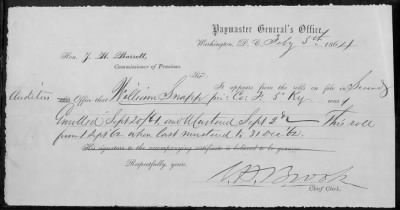 Paymaster General's Office,
Washington, D. C. Feby 5th, 1864
Hon. J. H. Barrett,
Commissioner of Pensions.
Sir
It appears from the rolls on file in Second
Auditors Office that William Snapp pri: Co: F 5" Ky was
Enrolled Sept 20/61, and Mustered Sept
This roll
from when last mustered to 31 Dec 62.
His signature to the accompanying certificate is believed to be genuine.
Respectfully, yours,
Chief Clerk.